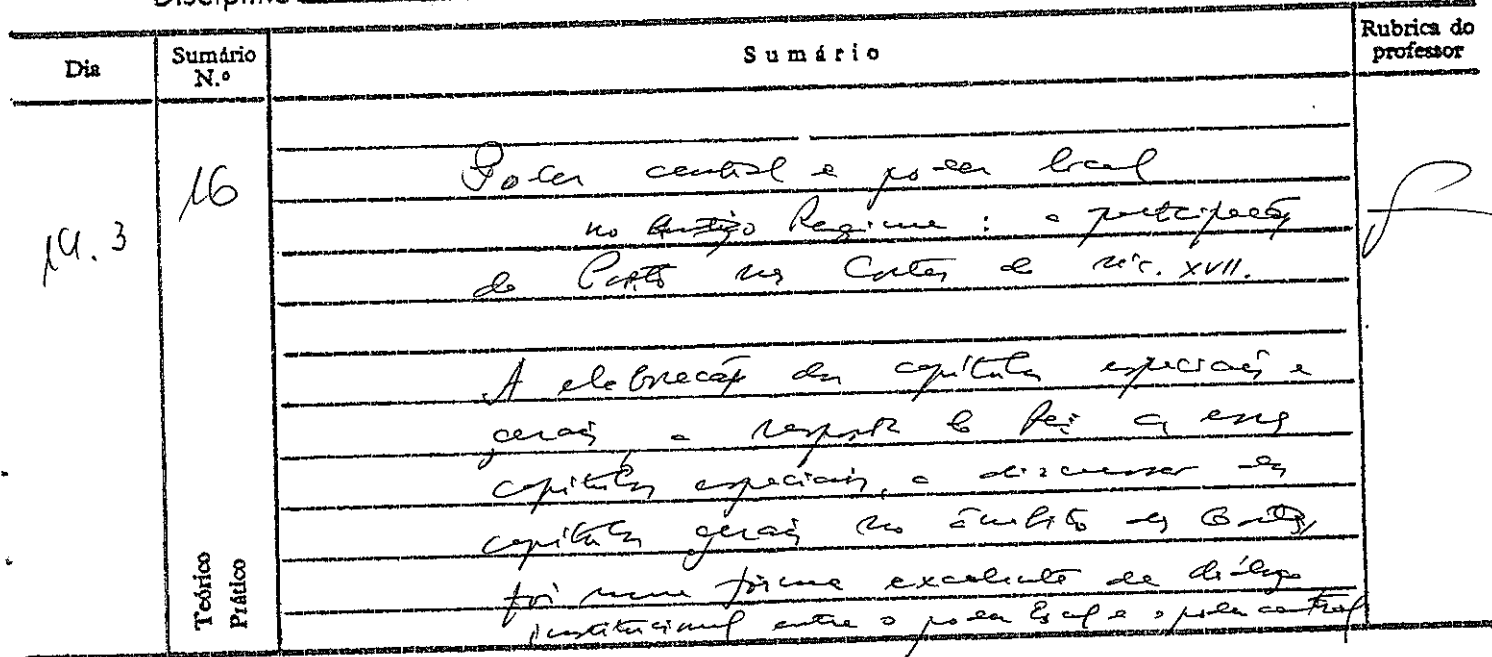 Disciplina
Dia
Sumário N.º
Sumário
Rubrica do professor
14.3
16
Teórico
Prático
Poder central e poder local
no Antigo Regime: a participação
do Porto nas Cortes do séc. XVII.
A elaboração dos capítulos especiais e
gerais, a resposta do Rei a esses
capítulos especiais, a discussão dos
capítulos gerais no âmbito das Cortes,
foi uma forma excelente de diálogo
institucional entre o poder local e o poder central